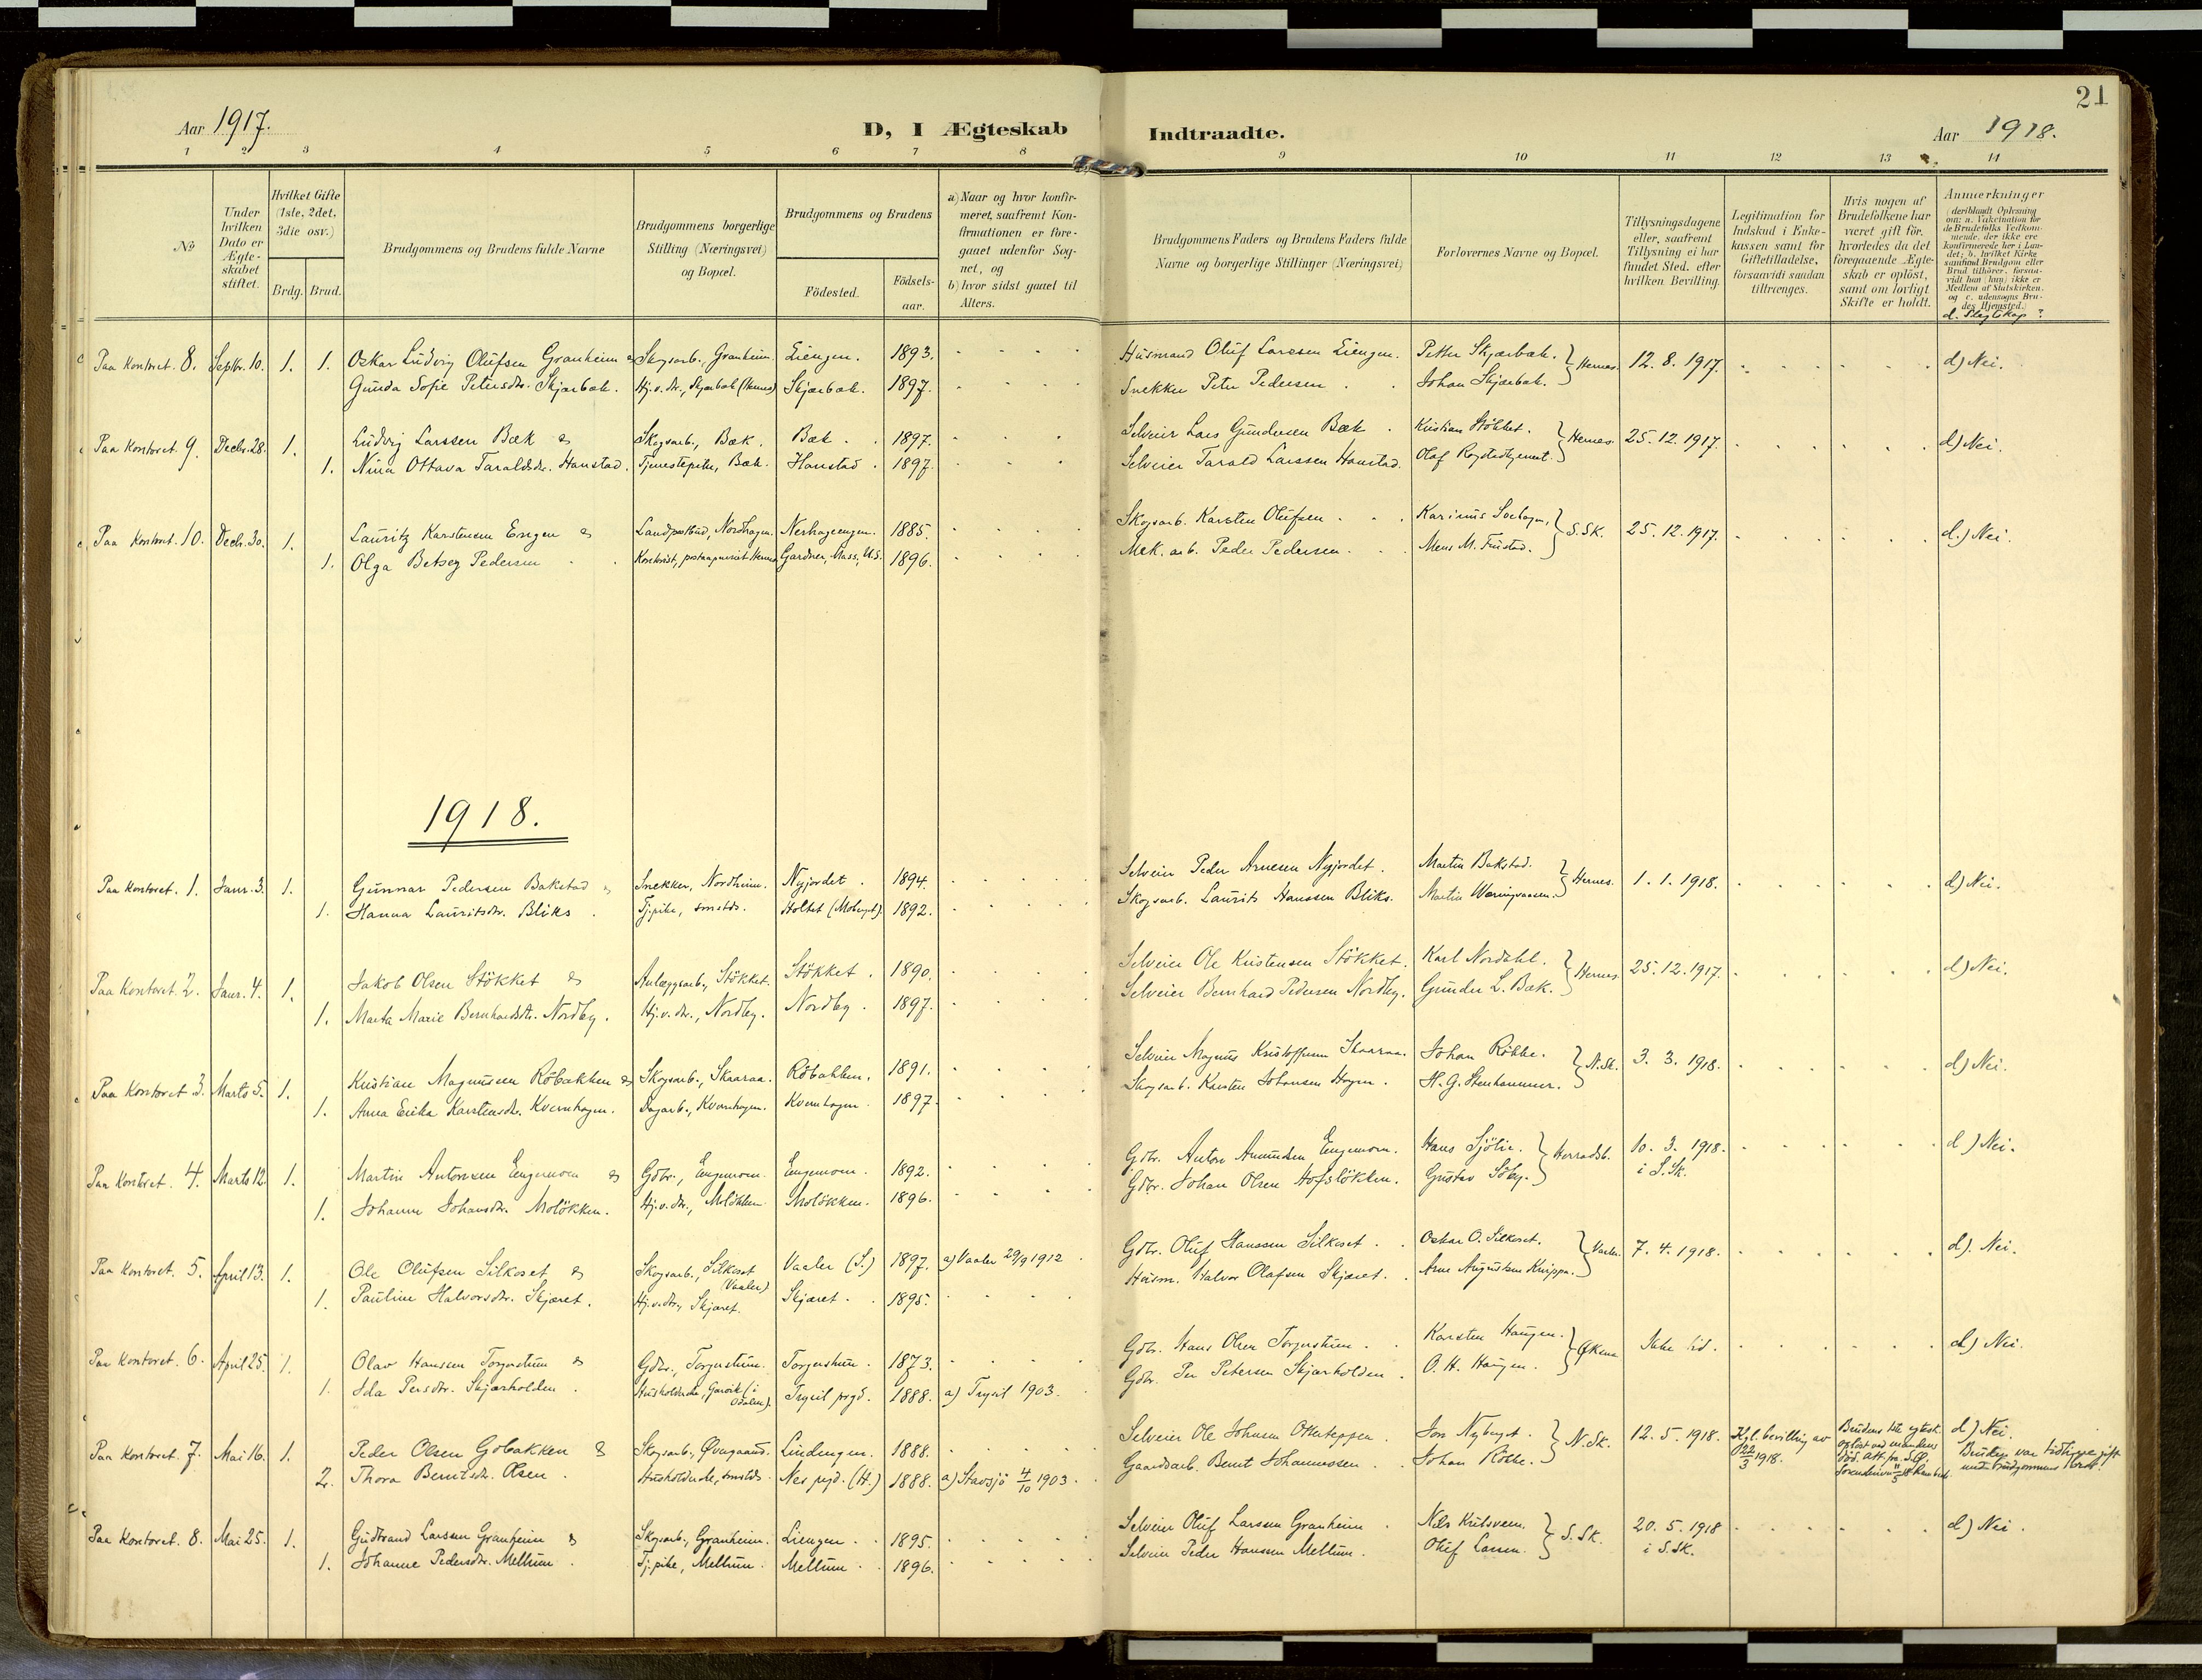 21
Aar 1917. D, I Ægteskab Indtraadte. Aar 1918.
1 2 3 4 5 6 7 8 9 10 11 12 13 14
No
Under hvilken Dato er Ægteskabet stiftet.
Hvilket Gifte (1ste, 2det, 3die osv.)
Brdg. Brud.
Brudgommens og Brudens fulde Navne
Brudgommens borgerlige Stilling (Næringsvei) og Bopæl.
Brudgommens og Brudens
Födested. Födselsaar.
a) Naar og hvor konfirmeret, saafremt Konfirmationen er foregaaet udenfor Sognet, og
b) hvor sidst gaaet til Alters.
Brudgommens Faders og Brudens Faders fulde Navne og borgerlige Stillinger (Næringsvei)
Forlovernes Navne og Bopæl.
Tillysningsdagene eller, saafremt Tillysning ei har fundet Sted, efter hvilken Bevilling.
Legitimation for Indskud i Enkekassen samt for Giftetilladelse, forsaavidt saadan tiltrænges.
Hvis nogen af Brudefolkene har været gift för, hvorledes da det foregaaende Ægteskab er oplöst, samt om lovligt Skifte er holdt.
Anmærkninger (deriblandt Oplysning om: a. Vakcination for de Brudefolks Vedkommende, der ikke ere konfirmerede her i Landet; b. hvilket Kirkesamfund Brudgom eller Brud tilhörer, forsaavidt han (hun) ikke er Medlem af Statskirken, og c. udensogns Brudes Hjemsted.)
d. Slegtskap?
Paa Kontoret. 8. Septbr. 10. 1. 1. Oskar Ludvig Olufsen Granheim & Skogsarb., Granheim. Liengen. 1893. Husmand Oluf Larssen Liengen. Petter Skjærbæk. } Hernes. 12. 8. 1917. d) Nei.
Gunda Sofie Petersdtr. Skjærbæk. Hj.v. dtr., Skjærbæk (Hernes) Skjærbæk. 1897. Snekker Peter Pedersen Johan Skjærbæk.
Paa Kontoret 9. Decbr. 28. 1. Ludvig Larssen Bæk & Skogsarb., Bæk. Bæk. 1897. Selveier Lars Gundersen Bæk Kristian Stökket. } Hernes. 25. 12. 1917. d) Nei.
1. Nina Ottava Taraldsdtr. Hanstad. Tjenestepike, Bæk. Hanstad. 1897. Selveier Tarald Larssen Hanstad. Olaf
Paa Kontoret. 10. Decb. 30. 1. Lauritz Karstensen Engen & Landpostbud, Nordhagen. Nerhageengen. 1885. Skogsarb. Karsten Olufsen Karinus } S. Sk. 25. 12. 1917. d.) Nei.
1. Olga Betsey Pedersen Kontorist, Hernes Gardner, Mass., U.S. 1896. Mek. arb. Peder Pedersen. Mens M.
1918.
Paa Kontoret. 1. Janr. 3. 1. Gunnar Pedersen Bakstad & Snekker, Nordheim. Nyjordet 1894. Selveier Peder Arnesen Nyjordet. Martin Bakstad. } Hernes. 1. 1. 1918. d) Nei.
1. Hanna Lauritsdtr. Bliks Tj.pike, smstds. Holtet (Moberget). 1892. Skogsarb. Laurits Hanssen Bliks. Martin
Paa Kontoret. 2. Janr. 4. 1. Jakob Olsen Stökket & Anlægsarb., Stökket. Stökket. 1890. Selveier Ole Kristensen Stökket. Karl Nordahl. } Hernes. 25. 12. 1917. d) Nei.
1. Marta Marie Bernhardsdtr. Nordby. Hj.v. dtr., Nordby. Nordby. 1897. Selveier Bernhard Pedersen Nordby. Gunder L. Bæk.
Paa Kontoret 3. Marts 5. 1. Kristian Magnussen Röbakken & Skogsarb., Skaaraa. Röbakken. 1891. Selveier Magnus Kristoffersen Skaaraa. Johan Röbbe. } N. Sk. 3. 3. 1918. d) Nei.
1. Anna Erika Karstensdtr. Kvernhagen. Dagarb., Kvernhagen. Kvernhagen. 1897. Skogsarb. Karsten Johansen Hagen. H. G. Stenhammer.
Paa Kontoret. 4. Marts 12. 1. Martin Antonsen Engemoen & Gdbr., Engemoen. Engemoen. 1892. Gdbr. Anton Amundsen Engemoen. Hans Sjölie. } Herradsb. 10. 3. 1918.
1. Johanne Johansdtr. Molökken. Hj.v. dtr., Molökken. Molökken. 1896. Gdbr. Johan Olsen Hofslökken. Gustav Söby. i S. Sk. d) Nei.
Paa Kontoret. 5. April 13. 1. Ole Olufsen Silkoset & Skogsarb., Silkoset (Vaaler) Vaaler (S.) 1897. a) Vaaler 29/9 1912 Gdbr. Oluf Hanssen Silkoset. Oskar O. Silkoset. } Vaaler. 7. 4. 1918. d). Nei.
1. Pauline Halvorsdtr. Skjæret. Hj.v. dtr., Skjæret. Skjæret. 1895. Husm. Halvor Olafsen Skjæret. Arne Augustsen Knippa.
Paa Kontoret. 6. April 25. 1. Olav Hanssen Torgerstuen & Gdbr., Torgerstuen. Torgerstuen. 1873. Gdbr. Hans Olsen Torgerstuen. Karsten Haugen. } Ikke d) Nei.
1. Ida Persdtr. Skjærholden. Husholderske, (i Odalen). Trysil prgd. 1888. a) Trysil 1903. Gdbr. Per Petersen Skjærholden. O. H. Haugen.
Paa Kontoret. 7. Mai 16. 1. Peder Olsen Gobakken & Skogsarb., Øvergaard. Lindengen. 1888. Selveier Ole Johnsen Jon Nyberget. } N. Sk. 12. 5. 1918. Kgl. bevilling av 22/3 1918. d) Nei.
2. Thora Berntsdtr. Olsen. Husholderske, smstds. Nes prgd. (H.) 1888. a) Stavsjö 4/10 1903. Gaardsarb. Bernt Johannessen. Johan Röbbe. Bruden var tidligere gift
Paa Kontoret. 8. Mai 25. 1. Gudbrand Larssen Granheim & Skogsarb., Granheim. Liengen. 1895. Selveier Oluf Larssen Granheim Nils } S. Sk. 20. 5. 1918 d) Nei.
1. Johanne Pedersdtr. Mellum. Tj.pike, Mellum. Mellum. 1896. Selveier Peder Hanssen Mellum. Oluf Larsen. i S. Sk.